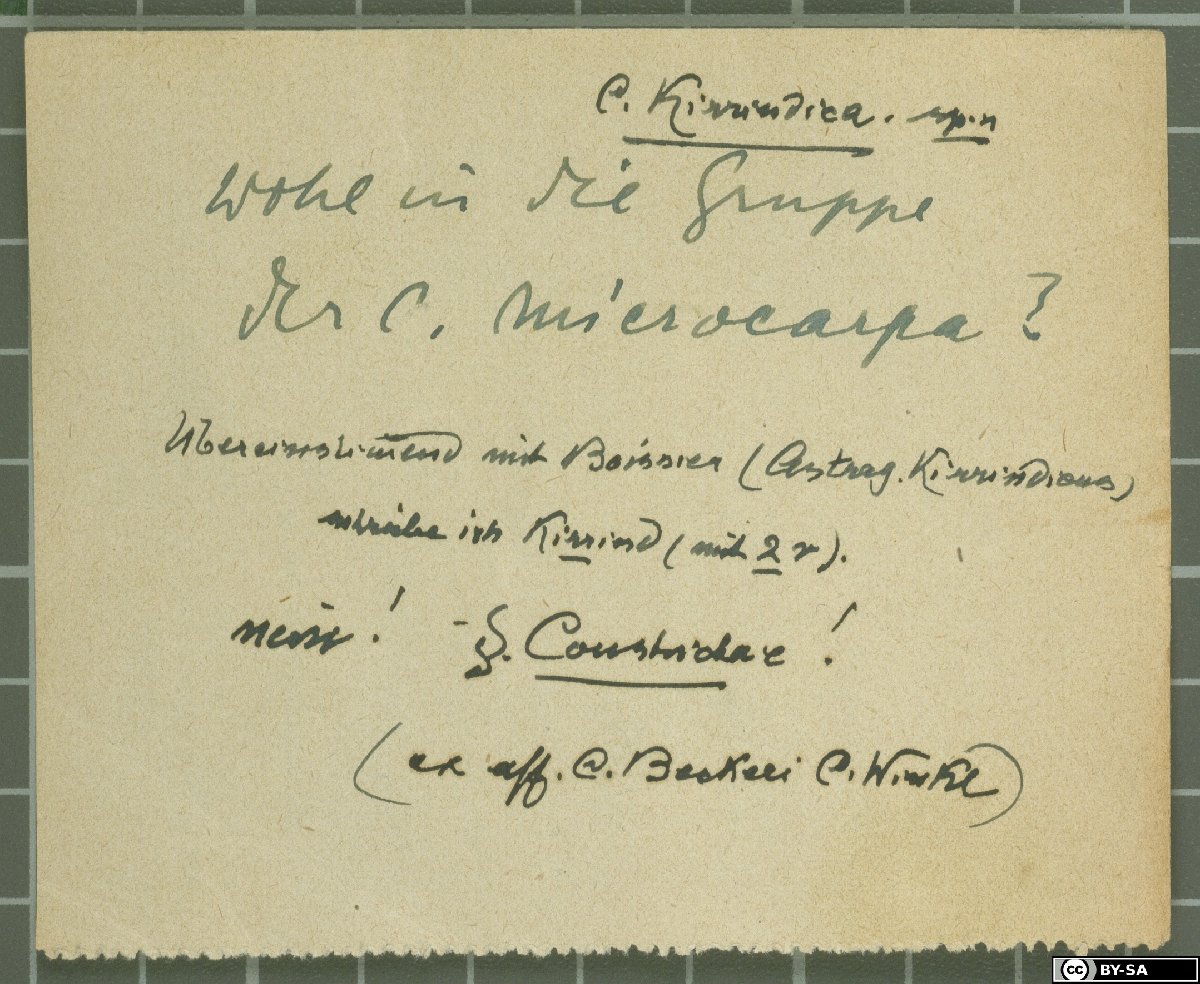 C. Kirrindica. sp. n
Wohl in die Gruppe
der C. microcarpa?
Übereinstimend mit Boissier (Astrag. Kirrindicus)
schriebe ich Kirrind (mit 2 r).
nein! - §. Cousinia !
(ex aff. C. Beckeri C. Winkl)
CC BY-SA